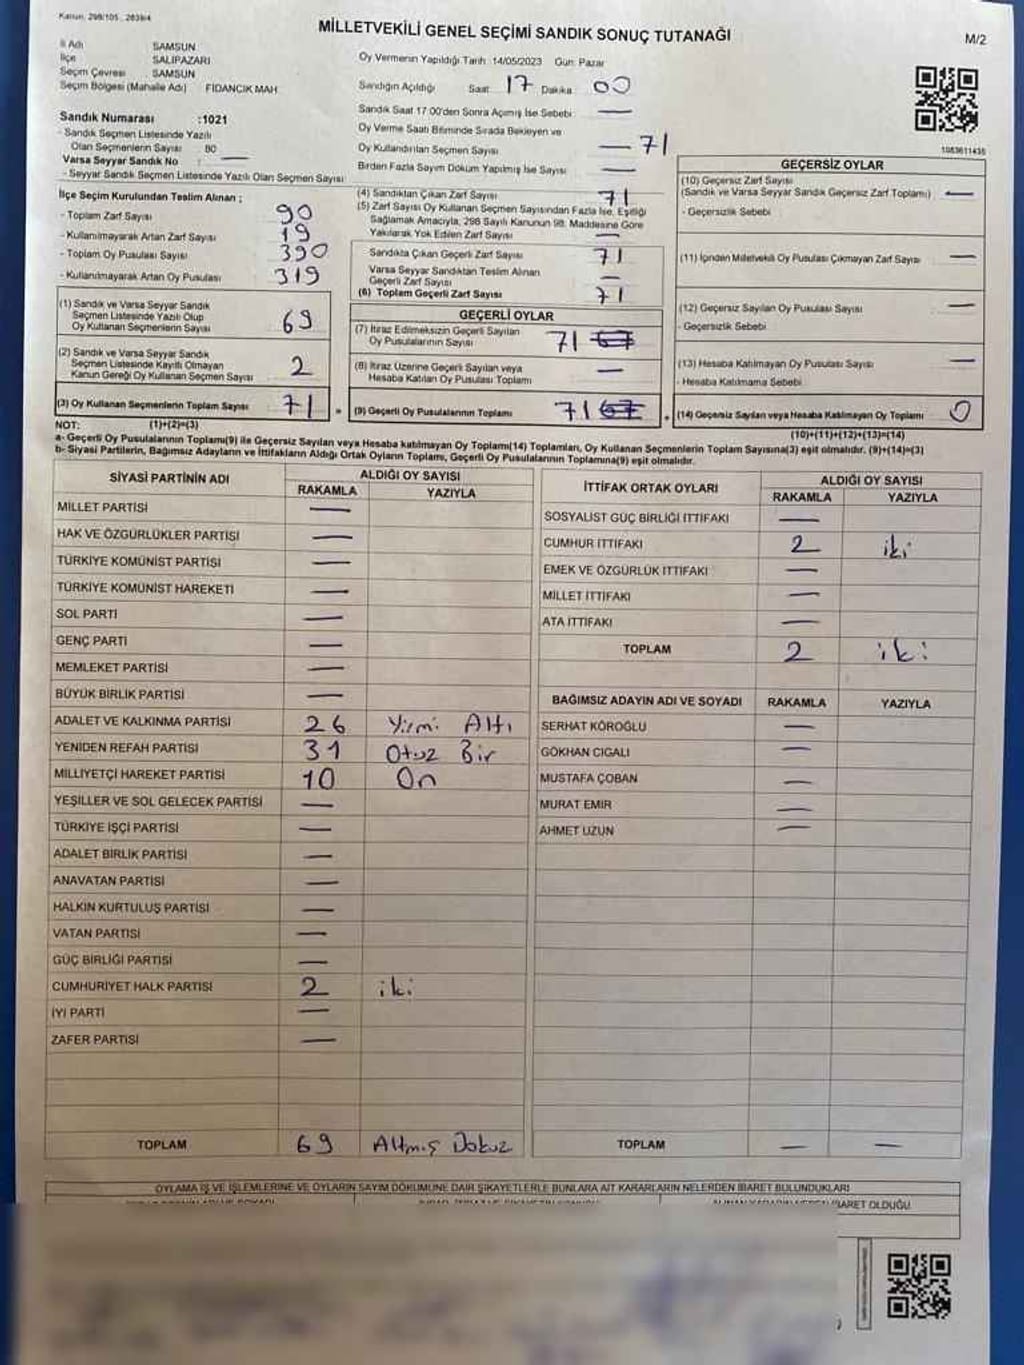 Kanun, 298/105, 2839/4
MİLLETVEKİLİ GENEL SEÇİMİ SANDIK SONUÇ TUTANAĞI
M/2
İl Adı SAMSUN
İlçe SALIPAZARI
Seçim Çevresi SAMSUN
Seçim Bölgesi (Mahalle Adı) FIDANCIK MAH.
Sandık Numarası :1021
- Sandık Seçmen Listesinde Yazılı
Olan Seçmenlerin Sayısı 80
Varsa Seyyar Sandık No : —
- Seyyar Sandık Seçmen Listesinde Yazılı Olan Seçmen Sayısı
İlçe Seçim Kurulundan Teslim Alınan ;
- Toplam Zarf Sayısı 90
- Kullanılmayarak Artan Zarf Sayısı 19
- Toplam Oy Pusulası Sayısı 390
- Kullanılmayarak Artan Oy Pusulası 319
(1) Sandık ve Varsa Seyyar Sandık
Seçmen Listesinde Yazılı Olup
Oy Kullanan Seçmenlerin Sayısı 69
(2) Sandık ve Varsa Seyyar Sandık
Seçmen Listesinde Kayıtlı Olmayan
Kanun Gereği Oy Kullanan Seçmen Sayısı 2
(3) Oy Kullanan Seçmenlerin Toplam Sayısı 71
Oy Vermenin Yapıldığı Tarih: 14/05/2023 Gün: Pazar
Sandığın Açıldığı Saat 17 Dakika: 00
Sandık Saat 17:00'den Sonra Açılmış İse Sebebi: —
Oy Verme Saati Bitiminde Sırada Bekleyen ve
Oy Kullandırılan Seçmen Sayısı — 71
Birden Fazla Sayım Döküm Yapılmış İse Sayısı —
(4) Sandıktan Çıkan Zarf Sayısı 71
(5) Zarf Sayısı Oy Kullanan Seçmen Sayısından Fazla İse, Eşitliği
Sağlamak Amacıyla, 298 Sayılı Kanunun 98. Maddesine Göre
Yakılarak Yok Edilen Zarf Sayısı —
Sandıkta Çıkan Geçerli Zarf Sayısı 71
Varsa Seyyar Sandıktan Teslim Alınan
Geçerli Zarf Sayısı —
(6) Toplam Geçerli Zarf Sayısı 71
GEÇERLİ OYLAR
(7) İtiraz Edilmeksizin Geçerli Sayılan
Oy Pusulalarının Sayısı 71 67
(8) İtiraz Üzerine Geçerli Sayılan veya
Hesaba Katılan Oy Pusulası Toplamı —
(9) Geçerli Oy Pusulalarının Toplamı 71 67
1083611435
GEÇERSİZ OYLAR
(10) Geçersiz Zarf Sayısı
(Sandık ve Varsa Seyyar Sandık Geçersiz Zarf Toplamı) —
- Geçersizlik Sebebi
(11) İçinden Milletvekili Oy Pusulası Çıkmayan Zarf Sayısı —
(12) Geçersiz Sayılan Oy Pusulası Sayısı —
- Geçersizlik Sebebi
(13) Hesaba Katılmayan Oy Pusulası Sayısı —
- Hesaba Katılmama Sebebi
(14) Geçersiz Sayılan veya Hesaba Katılmayan Oy Toplamı 0
NOT: (1)+(2)=(3)
(10)+(11)+(12)+(13)=(14)
a- Geçerli Oy Pusulalarının Toplamı(9) ile Geçersiz Sayılan veya Hesaba katılmayan Oy Toplamı(14) Toplamları, Oy Kullanan Seçmenlerin Toplam Sayısına(3) eşit olmalıdır. (9)+(14)=(3)
b- Siyasi Partilerin, Bağımsız Adayların ve İttifakların Aldığı Ortak Oyların Toplamı, Geçerli Oy Pusulalarının Toplamına(9) eşit olmalıdır.
SİYASİ PARTİNİN ADI ALDIĞI OY SAYISI
RAKAMLA YAZIYLA
MİLLET PARTİSİ —
HAK VE ÖZGÜRLÜKLER PARTİSİ —
TÜRKİYE KOMÜNİST PARTİSİ —
TÜRKİYE KOMÜNİST HAREKETİ —
SOL PARTİ —
GENÇ PARTİ —
MEMLEKET PARTİSİ —
BÜYÜK BİRLİK PARTİSİ —
ADALET VE KALKINMA PARTİSİ 26 Yirmi Altı
YENİDEN REFAH PARTİSİ 31 Otuz Bir
MİLLİYETÇİ HAREKET PARTİSİ 10 On
YEŞİLLER VE SOL GELECEK PARTİSİ —
TÜRKİYE İŞÇİ PARTİSİ —
ADALET BİRLİK PARTİSİ —
ANAVATAN PARTİSİ —
HALKIN KURTULUŞ PARTİSİ —
VATAN PARTİSİ —
GÜÇ BİRLİĞİ PARTİSİ —
CUMHURİYET HALK PARTİSİ 2 iki
İYİ PARTİ —
ZAFER PARTİSİ —
TOPLAM 69 Altmış Dokuz
İTTİFAK ORTAK OYLARI ALDIĞI OY SAYISI
RAKAMLA YAZIYLA
SOSYALİST GÜÇ BİRLİĞİ İTTİFAKI —
CUMHUR İTTİFAKI 2 iki
EMEK VE ÖZGÜRLÜK İTTİFAKI —
MİLLET İTTİFAKI —
ATA İTTİFAKI —
TOPLAM 2 iki
BAĞIMSIZ ADAYIN ADI VE SOYADI RAKAMLA YAZIYLA
SERHAT KÖROĞLU —
GÖKHAN CIGALI —
MUSTAFA ÇOBAN —
MURAT EMİR —
AHMET UZUN —
TOPLAM — —
OYLAMA İŞ VE İŞLEMLERİNE VE OYLARIN SAYIM DÖKÜMÜNE DAİR ŞİKAYETLERLE BUNLARA AİT KARARLARIN NELERDEN İBARET BULUNDUKLARI
İBARET OLDUĞU